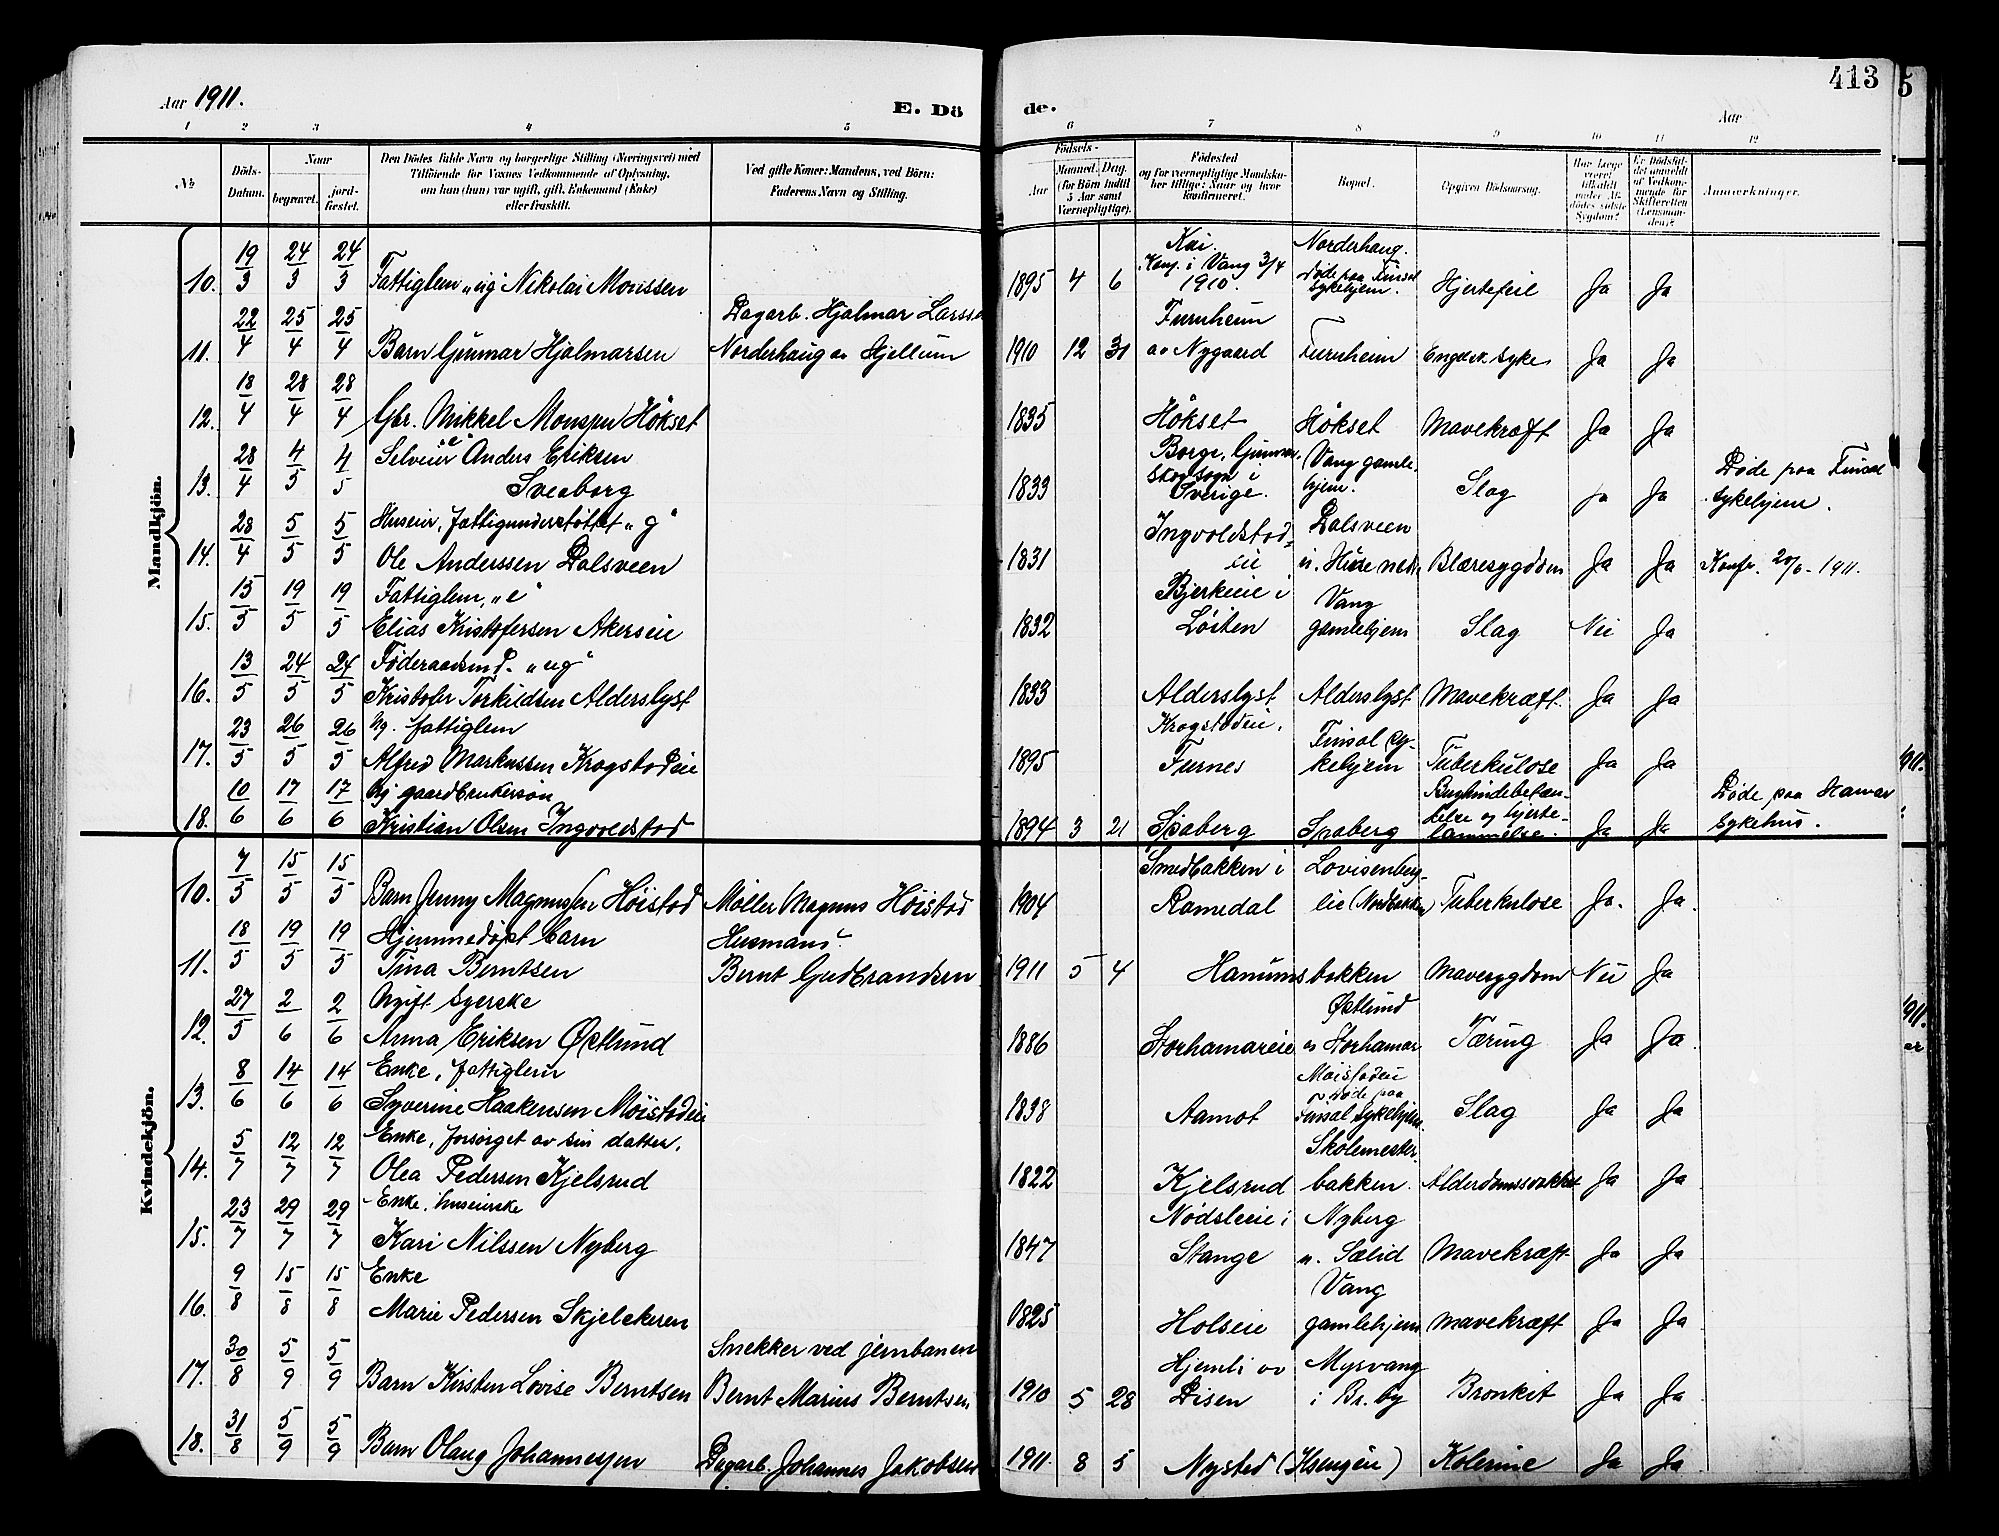 Aar 1911.
E. Dö de.
Aar
413
1 2 3 4 5 6 7 8 9 10 11 12
No
Döds-Datum.
Naar
begravet.
jord-fæstet.
Den Dödes fulde Navn og borgerlige Stilling (Næringsvei) med
Tilföiende for Voxnes Vedkommende af Oplysning,
om han (hun) var ugift, gift, Enkemand (Enke)
eller fraskilt.
Ved gifte Koner: Mandens, ved Börn:
Faderens Navn og Stilling.
Födsels-
Aar
Maaned. Dag.
(for Börn indtil
5 Aar samt
Værnepligtige).
Födested
og for værnepligtige Mandska-
ber tillige: Naar og hvor
konfirmeret.
Bopæl.
Opgiven Dödsaarsag.
Har læge
været
tilkaldt
under Af-
dödes sidste
Sygdom?
Er Dödsfal-
det anmeldt
af Vedkom-
mende for
Skifteretten
(Lensman-
den)?
Anmærkninger.
Mandkjön.
10. 19/3 24/3 24/3 Fattiglem "ug" Nikolai Monssen 1895 4 6 Kai. Konf. i Vang 3/4 1910. Norderhaug. Døde paa Finsal sykehjem. Hjertefeil Ja Ja
11. 22/4 25/4 25/4 Barn Gunnar Hjalmarsen Dagarb. Hjalmar Larssen Norderhaug av Hjellum 1910 12 31 Furuheim av Nygaard Furuheim Engelsk syke Ja Ja
12. 18/4 28/4 28/4 Gbr. Mikkel Monsen Høkset 1835 Høkset Høkset Mavekræft Ja Ja
13. 28/4 4/5 4/5 Selveier "e" Anders Eriksen Sveaborg 1833 Borge, Gunnar- skog sogn i Sverige. Vang gamle- hjem. Slag Ja Ja Døde paa Finsal sykehjem.
14. 28/4 5/5 5/5 Huseier, fattigunderstøttet "g" Ole Anderssen Dalsveen 1831 Ingvoldstad- eie Dalsveen u. Huse nedre Blæresygdom Ja Ja Konfr. 20/6-1911.
15. 15/5 19/5 19/5 Fattiglem, "e" Elias Kristofersen Akerseie 1832 Bjerkeeie i Løiten Vang gamlehjem Slag Nei Ja
16. 13/5 24/5 24/5 Føderaadsmd. "ug" Kristofer Torkildsen Alderslyst 1833 Alderslyst Alderslyst Mavekræft. Ja Ja
17. 23/5 26/5 26/5 Ug. fattiglem Alfred Markussen Krogstadeie 1895 Krogstadeie, Furnes Finsal sy- kehjem Tuberkulose Ja Ja
18. 10/6 17/6 17/6 Ug gaardbrukersøn Kristian Olsen Ingvoldstad 1894 3 21 Spaberg Spaberg Bughindebetæn- delse og hjerte- lammelse. Ja Ja Døde paa Hamar sykehus.
Kvindekjön.
10. 7/5 15/5 15/5 Barn Jenny Magnussen Høistad Møller Magnus Høistad 1904 Smedbakken i Romedal Lovisenberg- eie (Nordbakken) Tuberkulose Ja. Ja.
11. 18/5 19/5 19/5 Hjemmedøpt barn Tina Berntsen Husmand Bernt Gudbrandsen 1911 5 4 Hanumsbakken Mavesygdom Nei Ja
12. 27/5 2/6 2/6 Ugift syerske Anna Eriksen Østlund 1886 Storhamareie Østlund av Storhamar Tæring Ja Ja
13. 8/6 14/6 14/6 Enke, fattiglem Syverine Haakensen Møistadeie 1838 Aamot Møistadeie Døde paa Finsal sykehjem. Slag Ja Ja
14. 5/7 12/7 12/7 Enke, forsørget av sin datter. Olea Pedersen Kjelsrud 1822 Kjelsrud Skolemester- bakken. Alderdomssvakhet Ja Ja
15. 23/7 29/7 29/7 Enke, huseierske Kari Nilssen Nyberg 1847 Nødsleeie i Stange Nyberg u. Sælid Mavekræft Ja Ja
16. 9/8 15/8 15/8 Enke Marie Pedersen Skjelckeren 1825 Holseie Vang gamlehjem Mavekræft Ja Ja
17. 30/8 5/9 5/9 Barn Kirsten Lovise Berntsen Snekker ved jernbanen Bernt Marius Berntsen 1910 5 28 Hjemli av Disen Mysvang i Br. by Bronkit Ja Ja
18. 31/8 5/9 5/9 Barn Olaug Johannessen Dagarb. Johannes Jakobsen 1911. 8 5 Nysted (Ilsengen) Kolerine Ja Ja